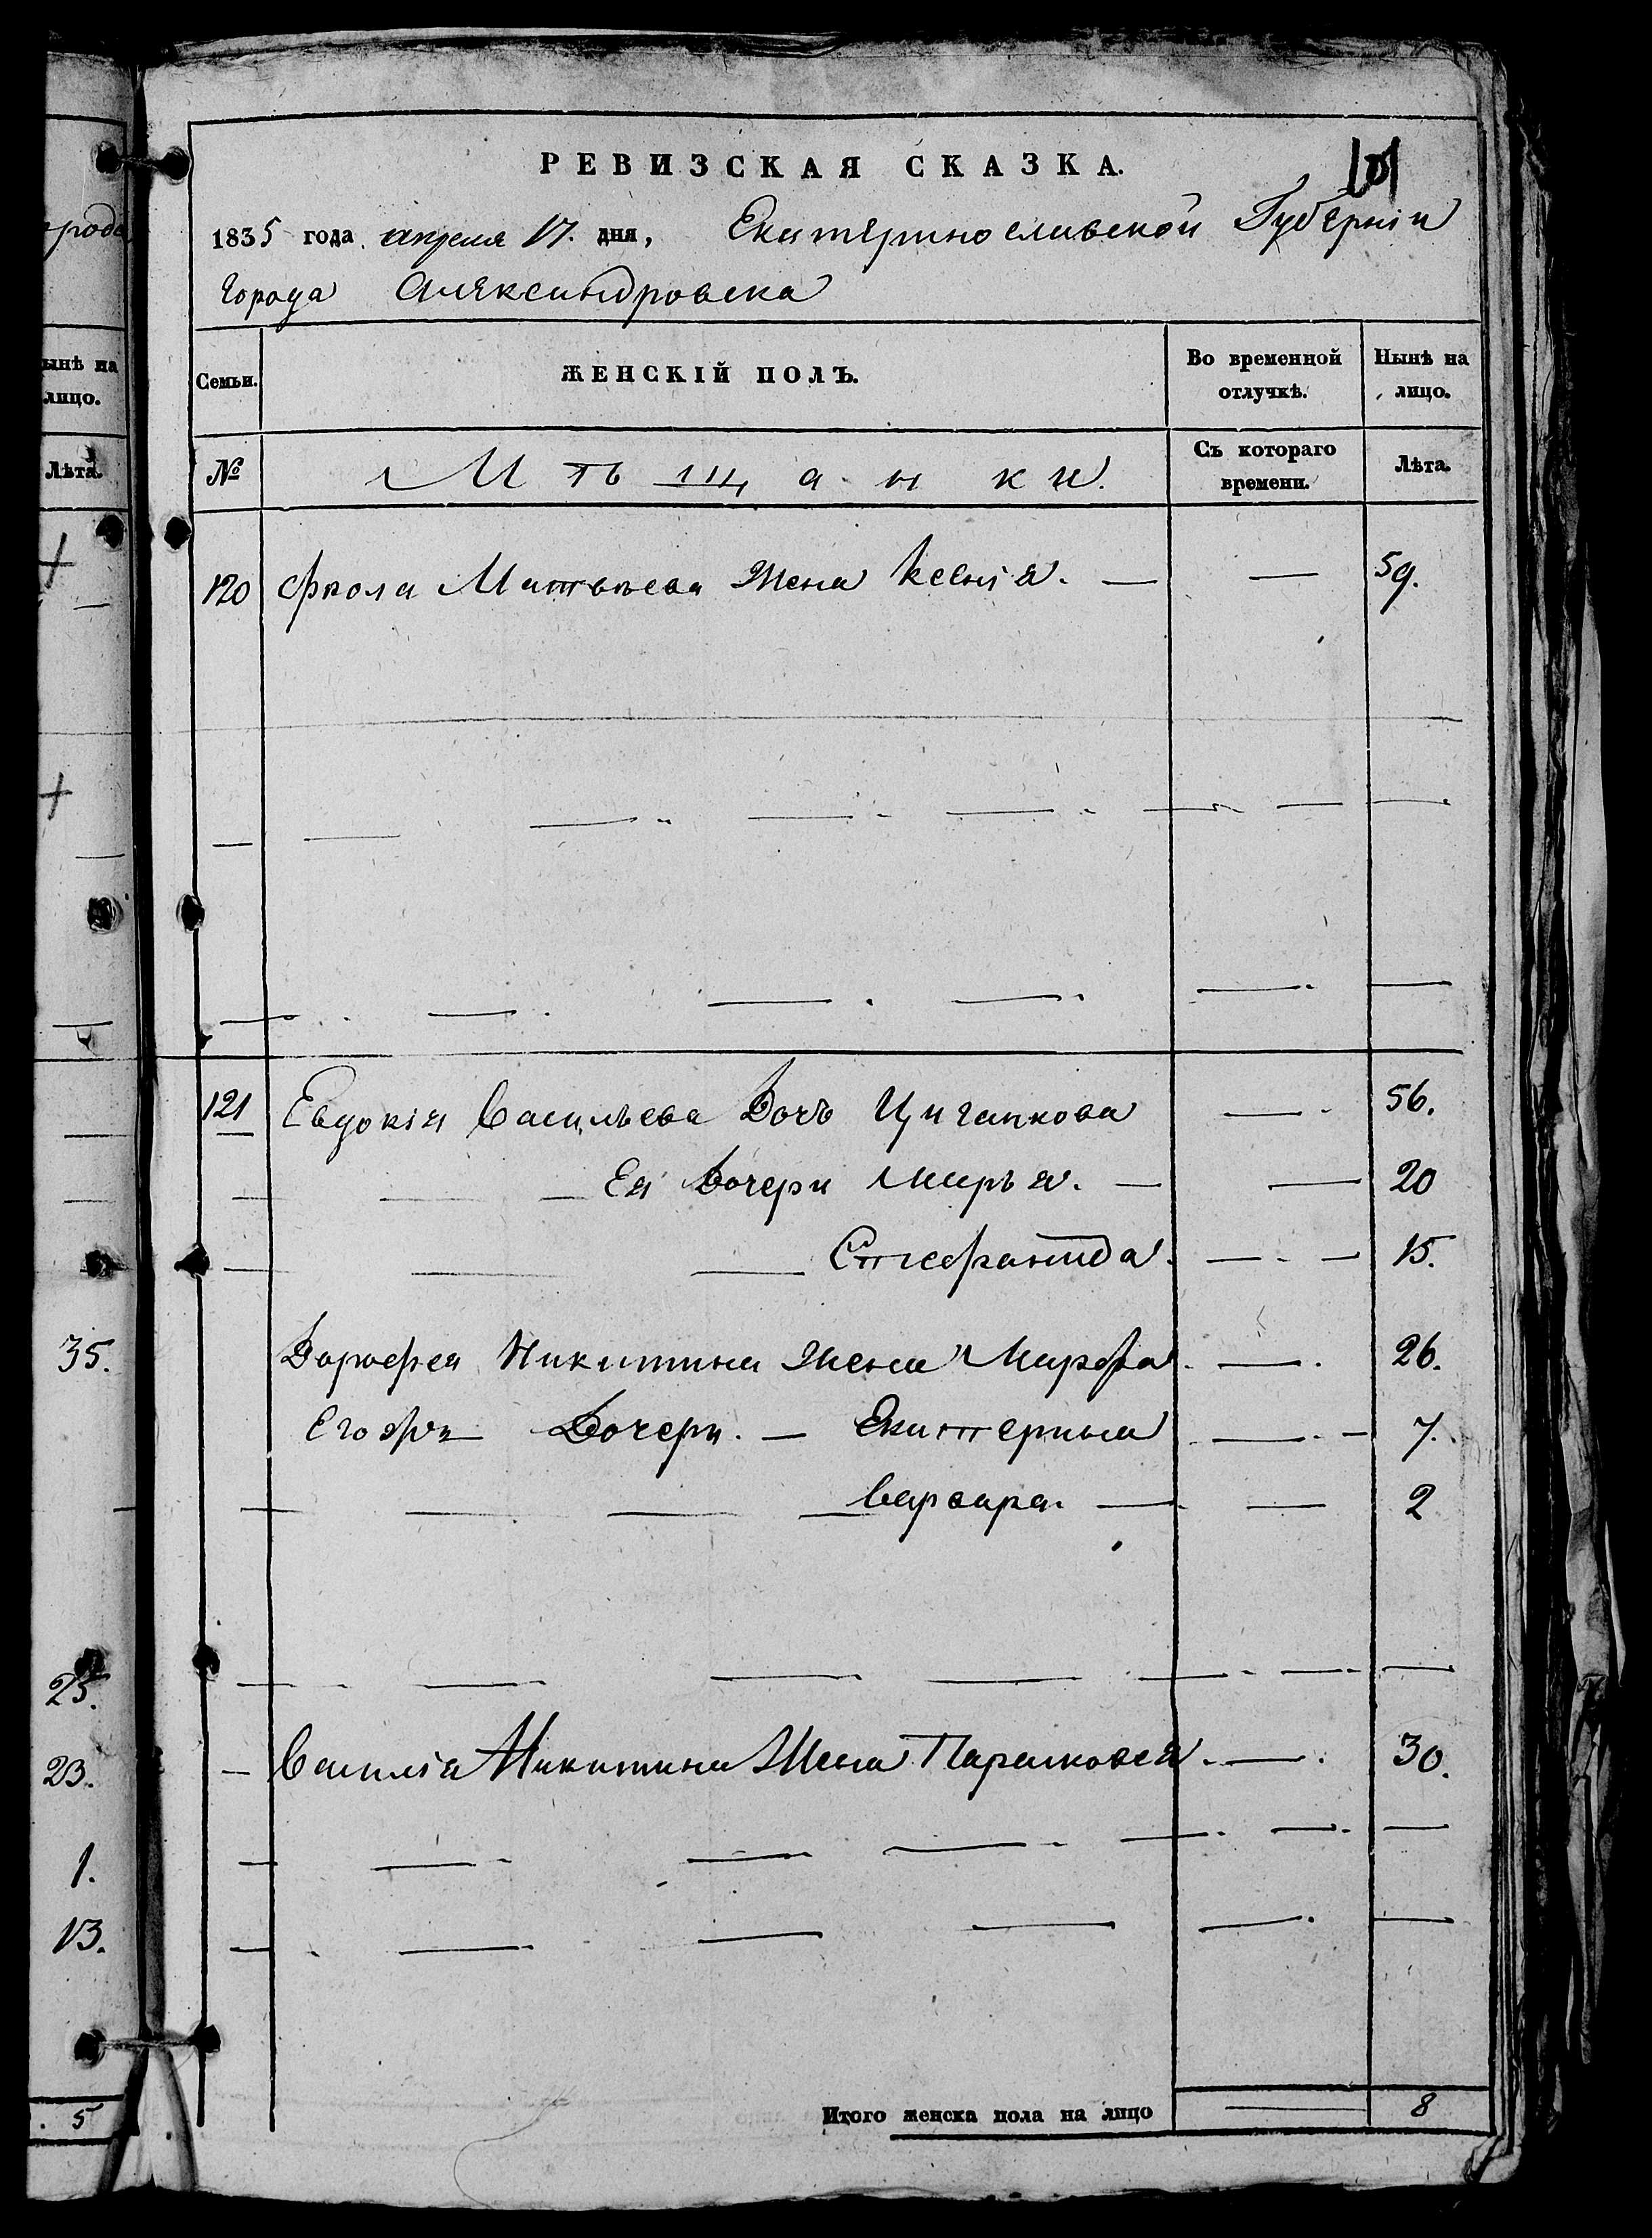 роде
ынѣ на
лицо.
Лѣта.
35.
25.
23.
1.
13.
5
РЕВИЗСКАЯ СКАЗКА.
101
1835 года апреля 17. дня, Екатеринославской Губерніи
города Александровска
Семьи.
ЖЕНСКІЙ ПОЛЪ.
Во временной отлучкѣ.
Нынѣ на лицо.
№
Мѣщанки.
Съ котораго времени.
Лѣта.
120 Фрола Матвѣева Жена Ксенія. — — 59.
121 Евдокія Васильева Дочь Цигапкова — 56.
Ея Дочери Марья. — — 20
Стефанида. — 15.
Дорофея Никитина Жена Марфа. — 26.
Его Дочери. — Екатерина — 7.
Варвара. — — 2
Василія Никитина Жена Парасковея. — 30.
Итого женска пола на лицо — 8